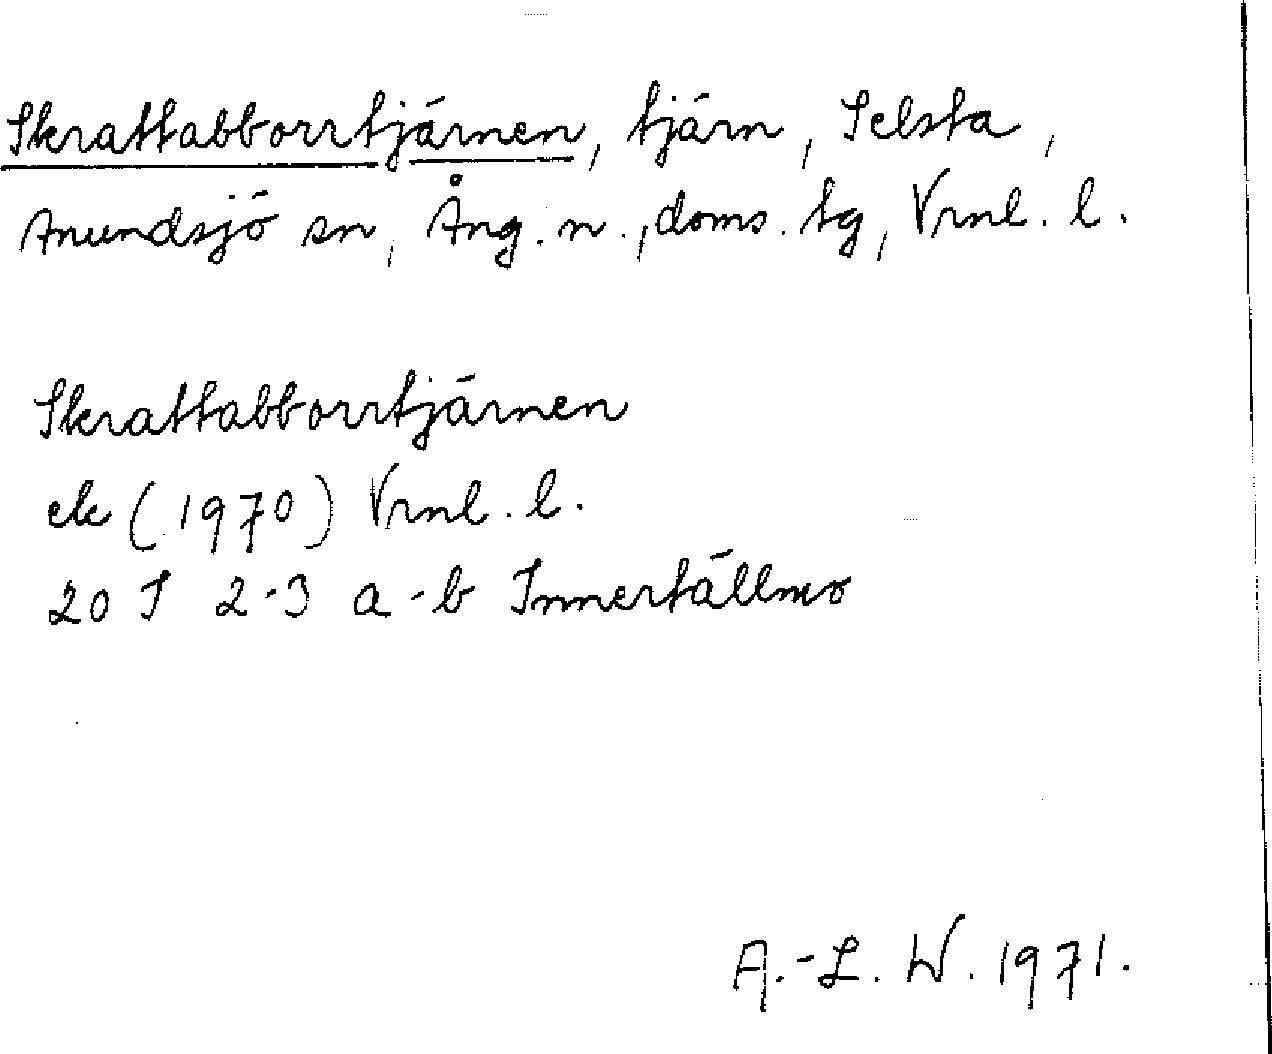 Skrattabborrtjärnen, tjärn, Selsta,
Anundsjö sn, Ång. n., doms. tg, Vrnl. l.
Skrattabborrtjärnen
ek (1970) Vrnl. l.
20 J 2-3 a-b Innertällmo
A.-L. W. 1971.